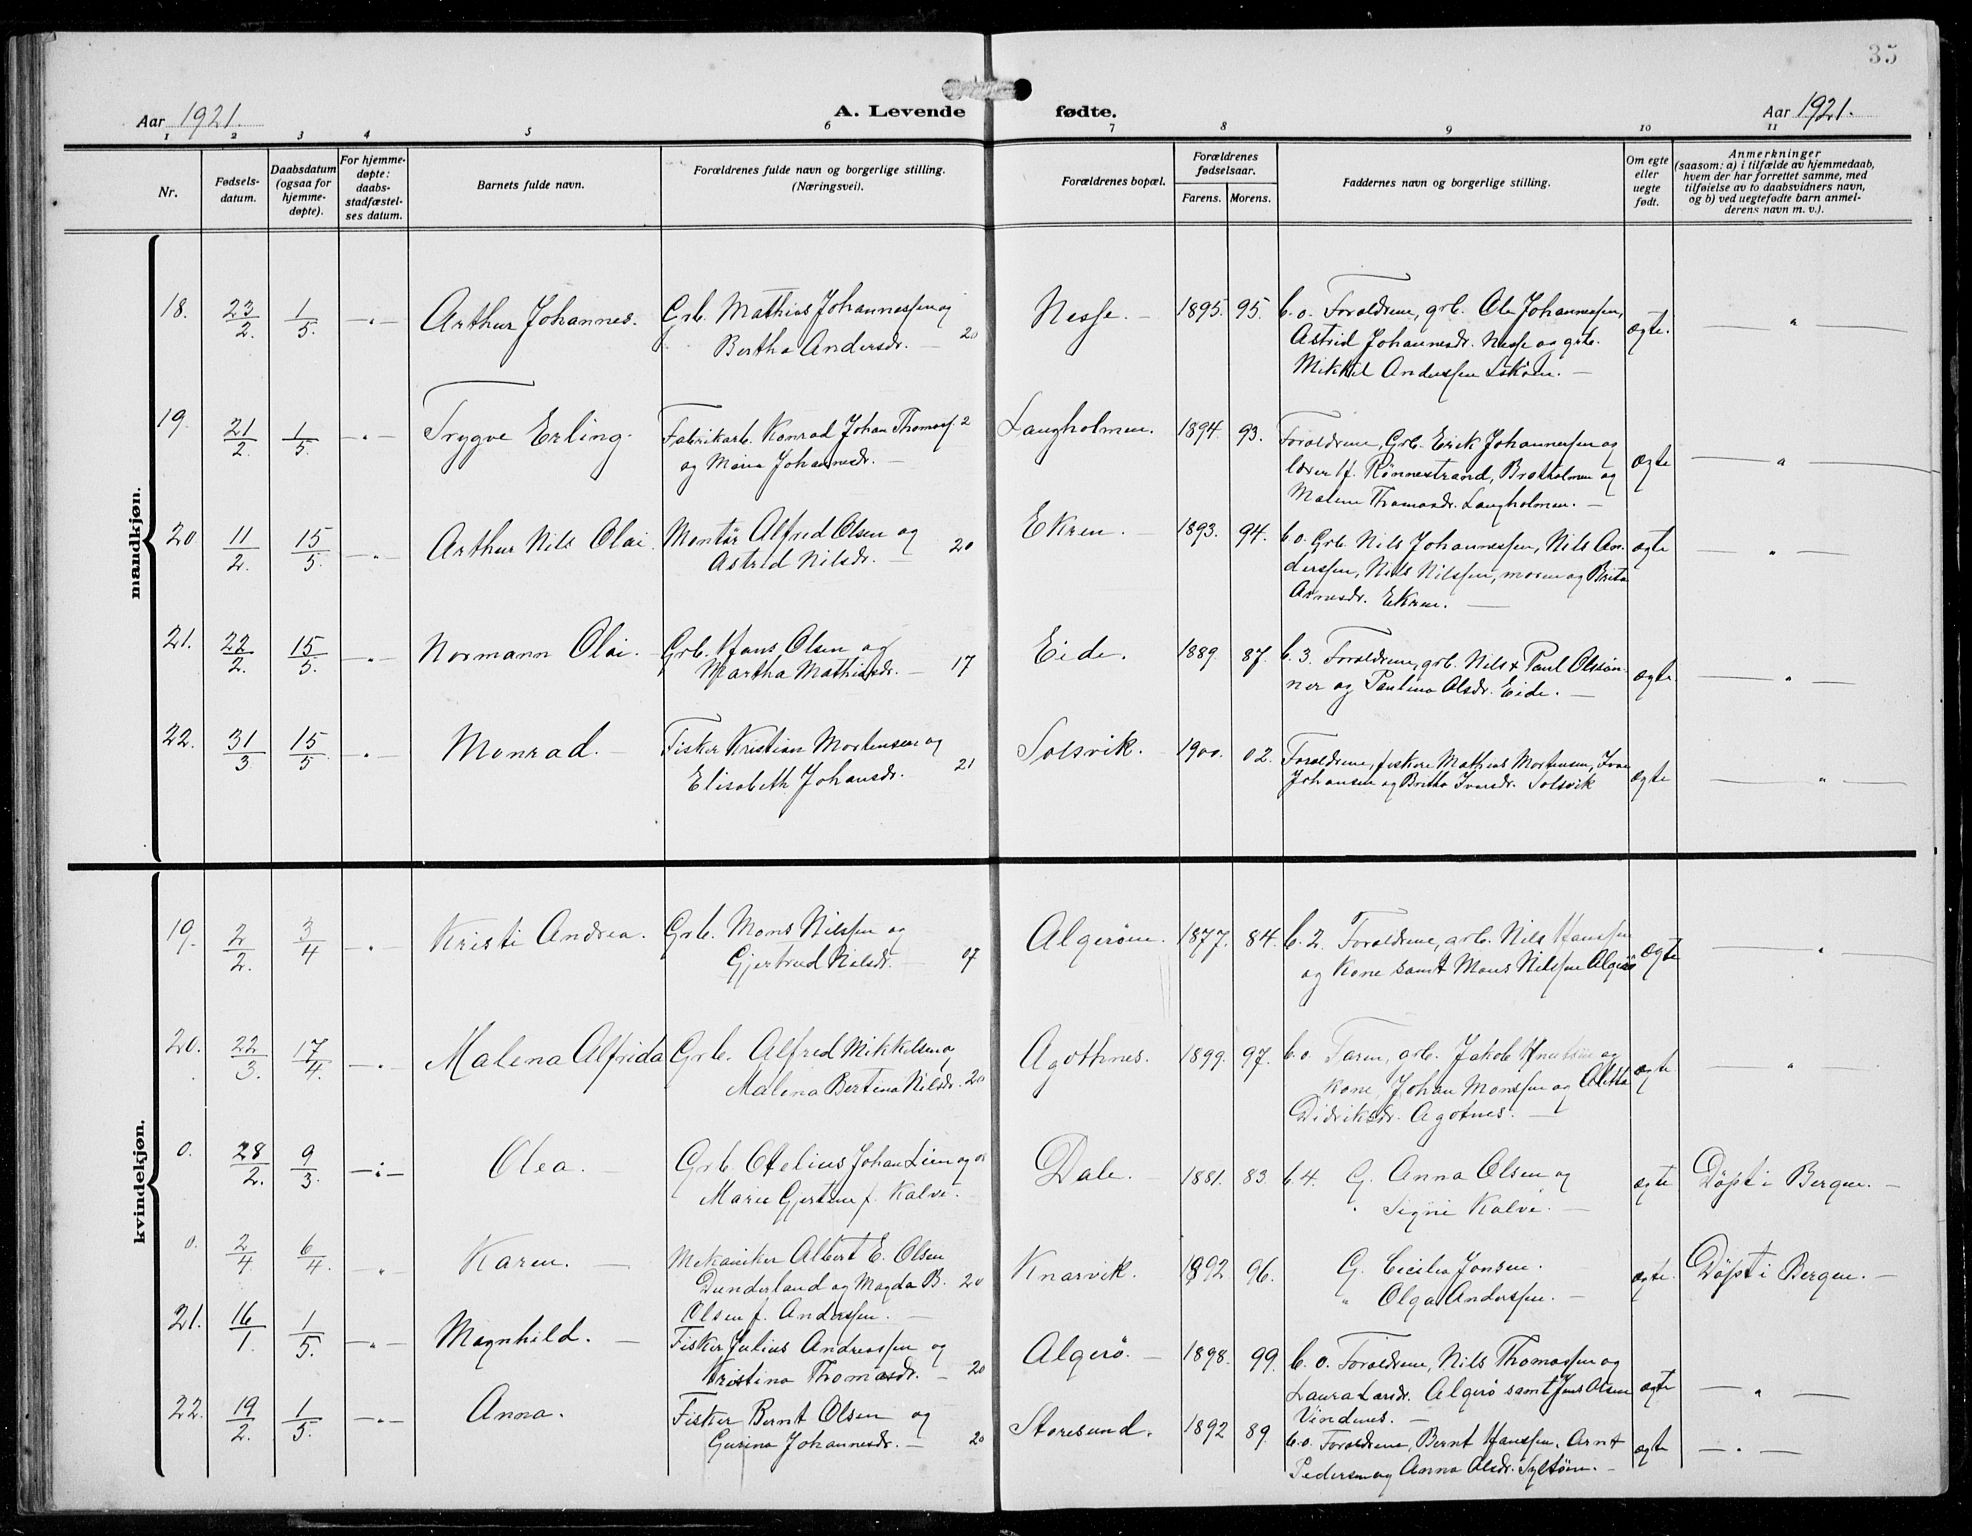 35
Aar 1921.
A. Levende fødte.
Aar 1921.
1 2 3 4 5 6 7 8 9 10 11
Nr.
Fødsels-
datum.
Daabsdatum
(ogsaa for
hjemme-
døpte).
For hjemme-
døpte:
daabs-
stadfæstel-
ses datum.
Barnets fulde navn.
Forældrenes fulde navn og borgerlige stilling.
(Næringsvei).
Forældrenes bopæl.
Forældrenes
fødselsaar.
Farens. Morens.
Faddernes navn og borgerlige stilling.
Om egte
eller
uegte
født.
Anmerkninger
(saasom: a) i tilfælde av hjemmedaab,
hvem der har forrettet samme, med
tilføielse av to daabsvidners navn,
og b) ved uegtefødte barn anmel-
derens navn m. v.).
mandkjøn.
18. 23/2 1/5. Arthur Johannes. Grb. Mathias Johannessen og
Bertha Andersdr. 20
Nesse. 1895. 95. b.o. Forældrene, grb. Ole Johannessen,
Astrid Johannesdr. Nesse og grb.
Mikkil Anderssen
ægte.
19. 21/2. 1/5. Trygve Erling. Fabrikarb. Konrad Johan Thomass. 2
og Maria Johannesdr.
Langholmen. 1894. 93. Forældrene, Grb. Erik Johannessen og
lærer Rønnestrand, Bratholmen og
Malene Thomasdr. Langholmen.
ægte
20 11/2. 15/5. Arthur Nils Olai. Montør Alfred Olsen og
Astrid Nilsdr. 20
Ekren. 1893. 94. b.o. Grb. Nils Johannessen, Nils An-
derssen, Nils Nilssen, moren og Brita
Arnesdr. Ekren.
ægte
21. 22/2. 15/5. Normann Olai. Grb. Hans Olsen og
Martha Mathiasdr. 17
Eide. 1889. 87. b. 3. Forældrene, grb. Nils & Paul Olssøn-
ner og Paulina Olsdr. Eide.
ægte.
22. 31/3 15/5. Monrad. Fisker Kristian Mortensen og
Elisabeth Johansdr. 21
Solsvik. 1900. 02. Forældrene, fiskere Mathias Mortensen, Ivar
Johansen og Britha Ivarsdr. Solsvik
ægte
kvindekjøn.
19. 2/2. 3/4 Kristi Andrea. Grb. Mons Nilssen og
Gjertrud Nilsdr. 07
Algerøen. 1877. 84. b. 2. Forældrene, grb. Nils Hanssen
og kone samt Mons Nilssen Algerø
ægte
20. 22/3. 17/4. Malena Alfrida Grb. Alfred Mikkelsen og
Malena Bertina Nilsdr. 20
Agothnes. 1899. 97. b.o. Faren, grb. Jakob Knutsen og
kone, Johan Monssen og Aletta
Didriksdr. Agotnes.
ægte
0. 28/2. 9/3. Olea. Grb. Otelius Johan Lien og
Marie Gjertine f. Kalve.
Dale. 1881. 83. b. 4. G. Anna Olsen og
" Signe Kalve.
ægte Døpt i Bergen.
0. 2/4 6/4. Karen. Mekaniker Albert E. Olsen
Dunderland og Magda B. 20
Olsen f. Anderssen.
Knarvik. 1892 96. G. Cecilia Jonsen.
" Olga Anderssen.
ægte. Døpt i Bergen.
21. 16/1. 1/5. Magnhild. Fisker Julius Andreassen og
Kristina Thomasdr. 20
Algerø. 1898. 99. b. o. Forældrene, Nils Thomassen og
Laura Larsdr. Algerø samt Jens Olsen
Vindenes.
ægte
22. 19/2. 1/5. Anna. Fisker Bernt Olsen og
Gurina Johannesdr. 20
Storesund. 1892 89. b.o. Forældrene, Bernt Hanssen, Arnt
Pedersen og Anna Olsdr. Syltøen.
ægte